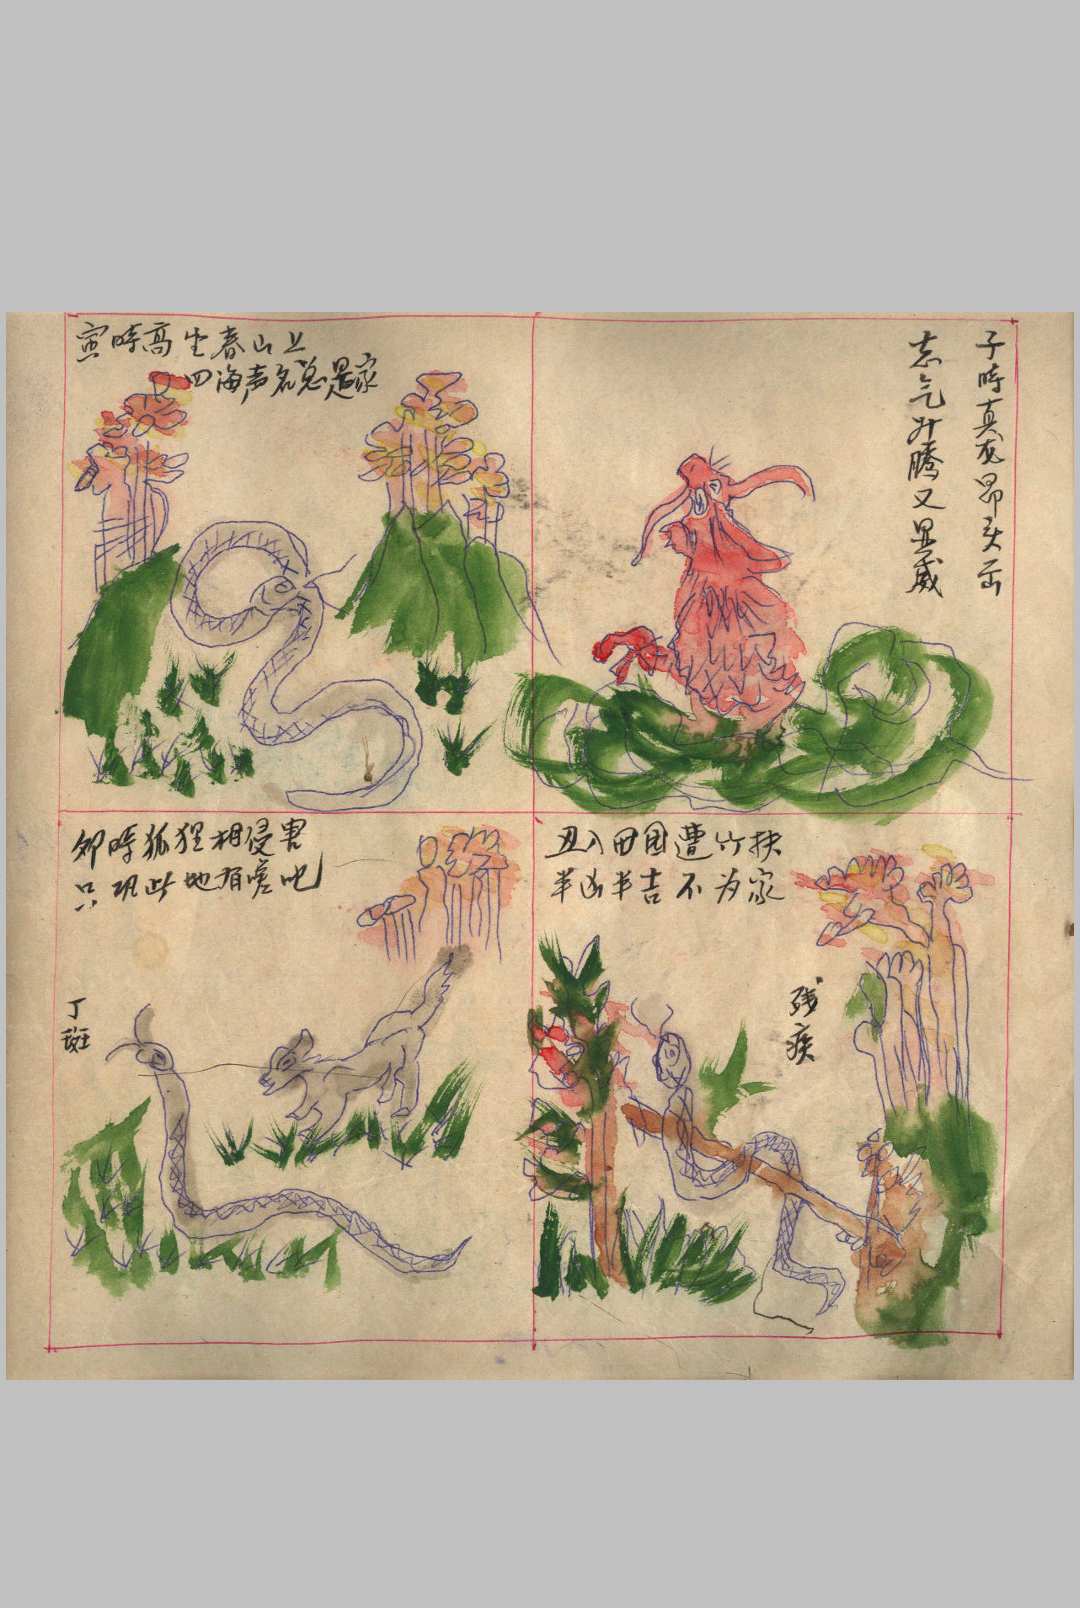 子時真龙昂头面
志气升腾又显威
丑入田园遭竹扶
半凶半吉不为家
残
疾
寅時高坐春山上
四海声名总是家
卯時狐狸相侵害
只巩此地有嗟吧
丁
斑